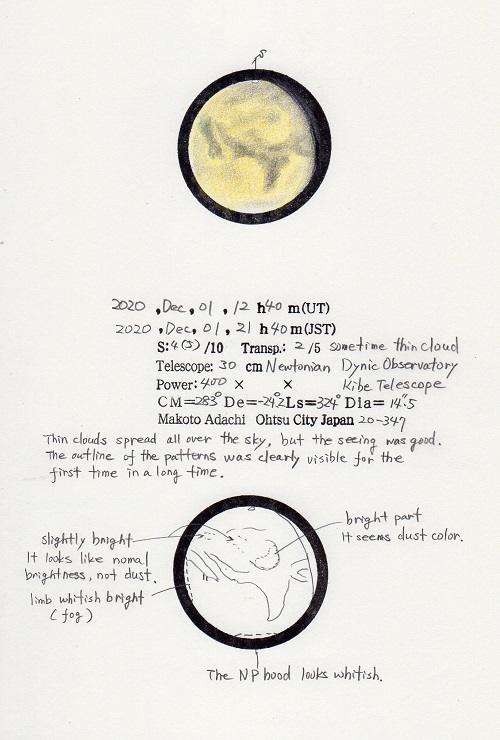 S
2020 , Dec, 01 , 12 h 40 m (UT)
2020 , Dec, 01 , 21 h 40 m (JST)
S: 4(5) /10 Transp.: 2 /5 sometime thin cloud
Telescope: 30 cm Newtonian Dynic Observatory
Power: 400 × × Kibe Telescope
CM=283° De=-24.2 Ls=324° Dia= 14".5
Makoto Adachi Ohtsu City Japan 20-347
Thin clouds spread all over the sky, but the seeing was good.
The outline of the patterns was clearly visible for the
first time in a long time.
slightly bright
It looks like nomal
brightness, not dust.
limb whitish bright
(fog)
bright part
It seems dust color.
The NP hood looks whitish.